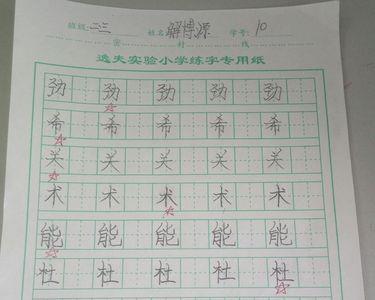 班级 二三 姓名 解博源 学号 10
密 封 线
逸夫实验小学练字专用纸
劲 劲 劲 劲 劲
希 希 希 希 希
关 关 关 关 关
术 术 术 术 术
能 能 能 能 能
杜 杜 杜 杜 杜